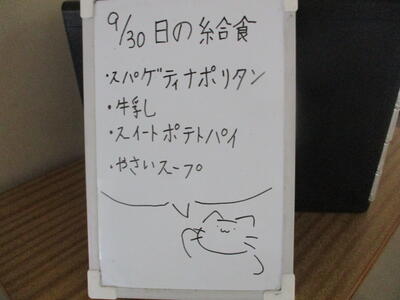 9/30日の給食
・スパゲティナポリタン
・牛乳し
・スイートポテトパイ
・やさいスープ